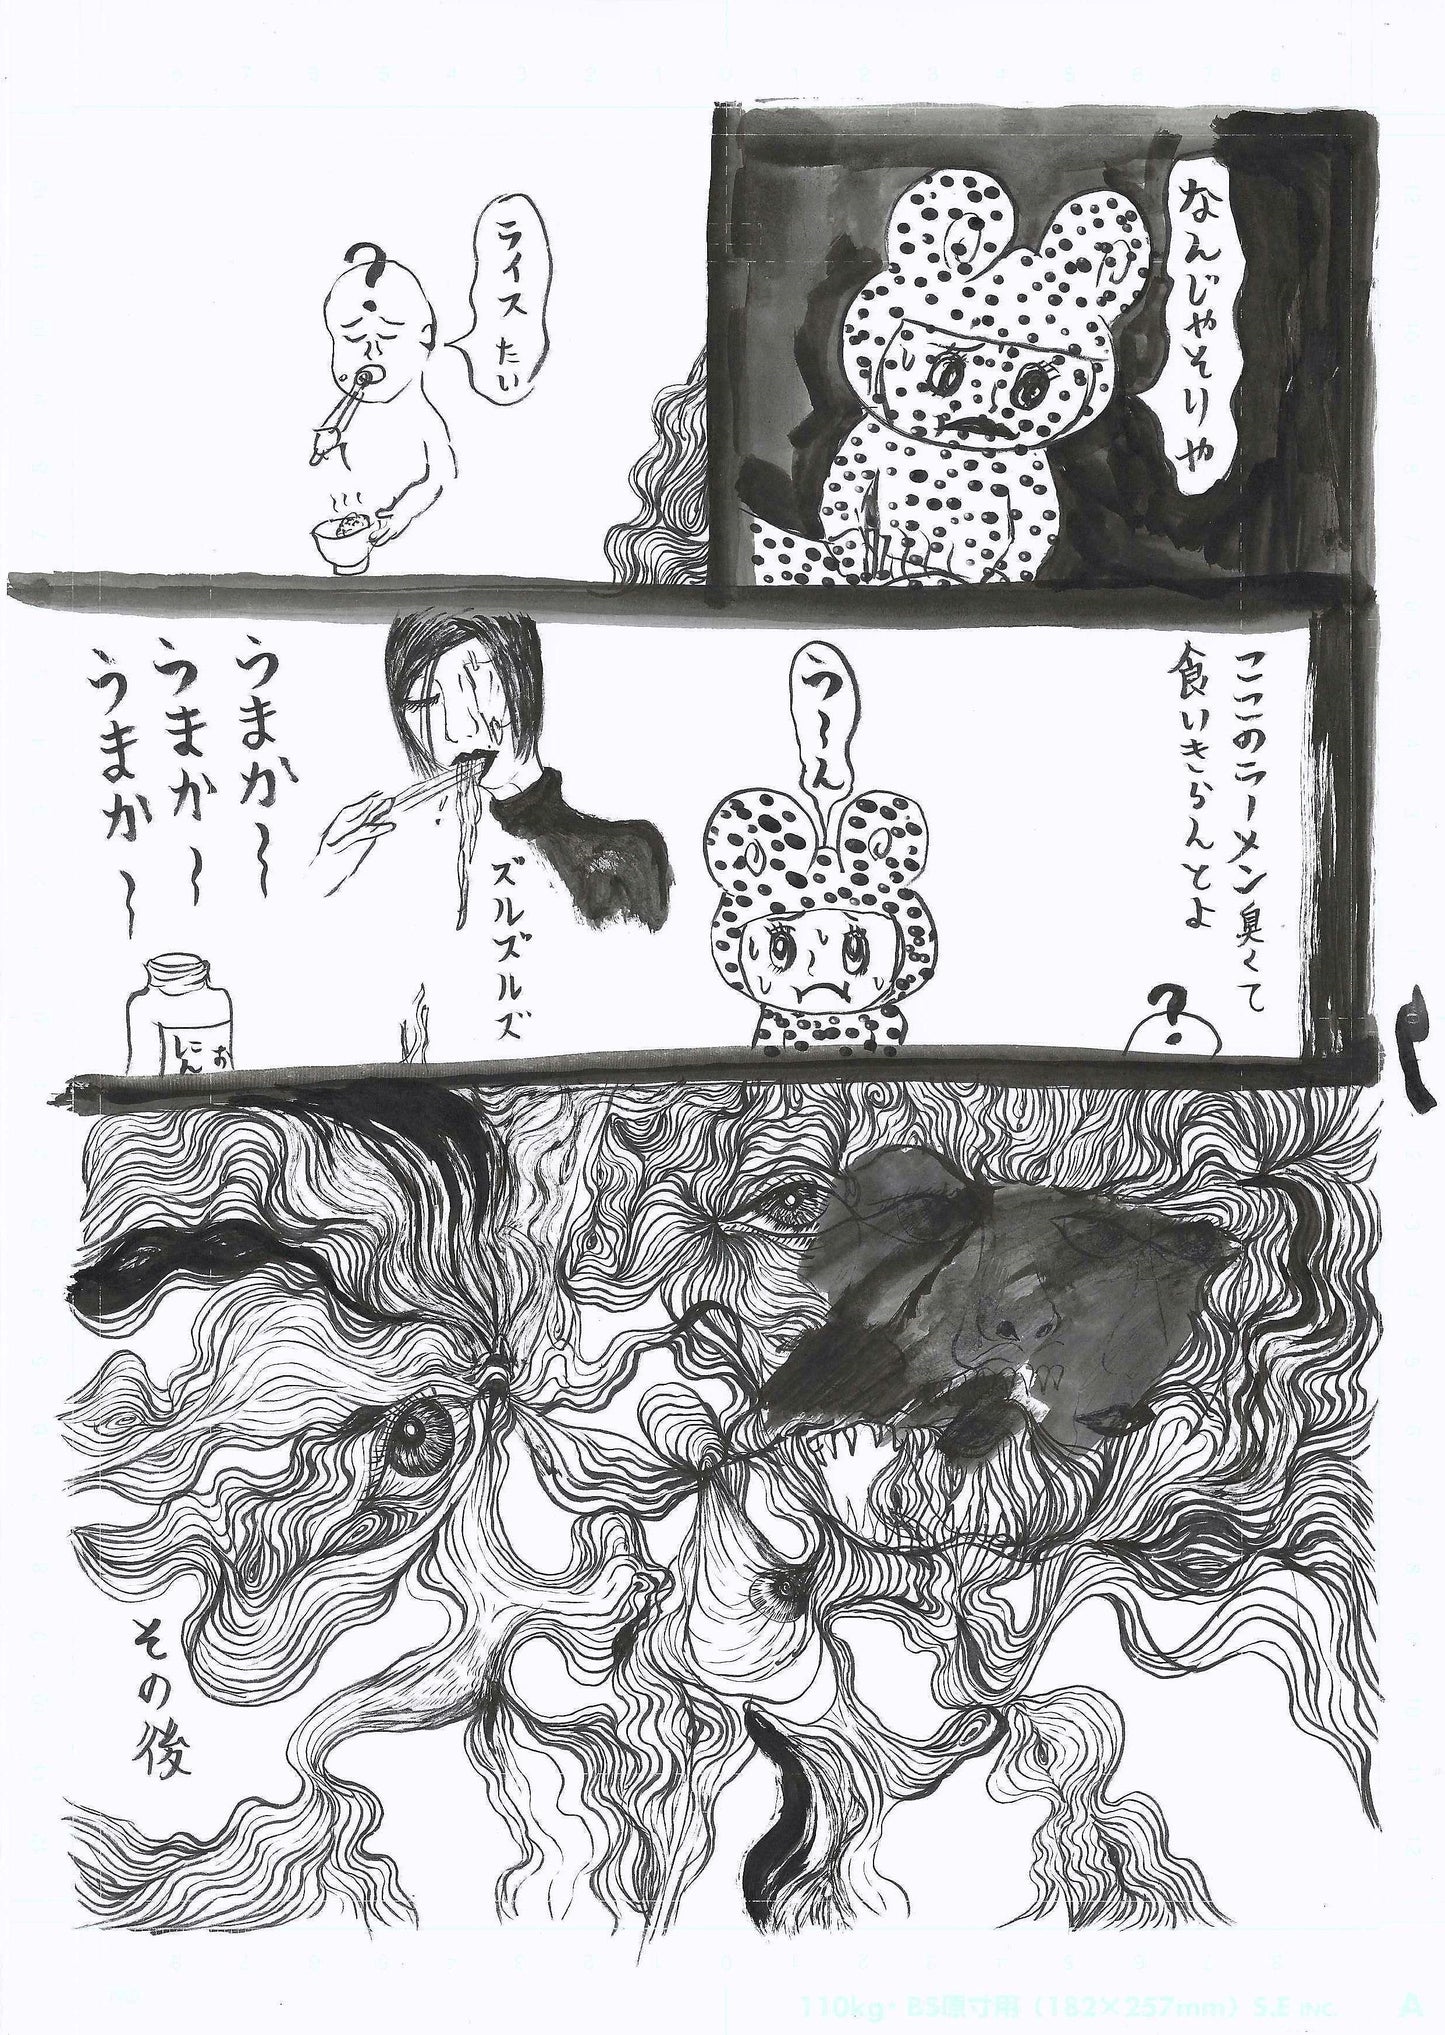 なんじゃそりゃ
ライスたい
ここのラーメン臭くて
食いきらんとよ
う〜ん
ズルズルズルズ
うまか〜〜
うまか〜〜
うまか〜〜
お
にん
その後
110kg・B5原寸用（182×257mm）S.E INC.
A